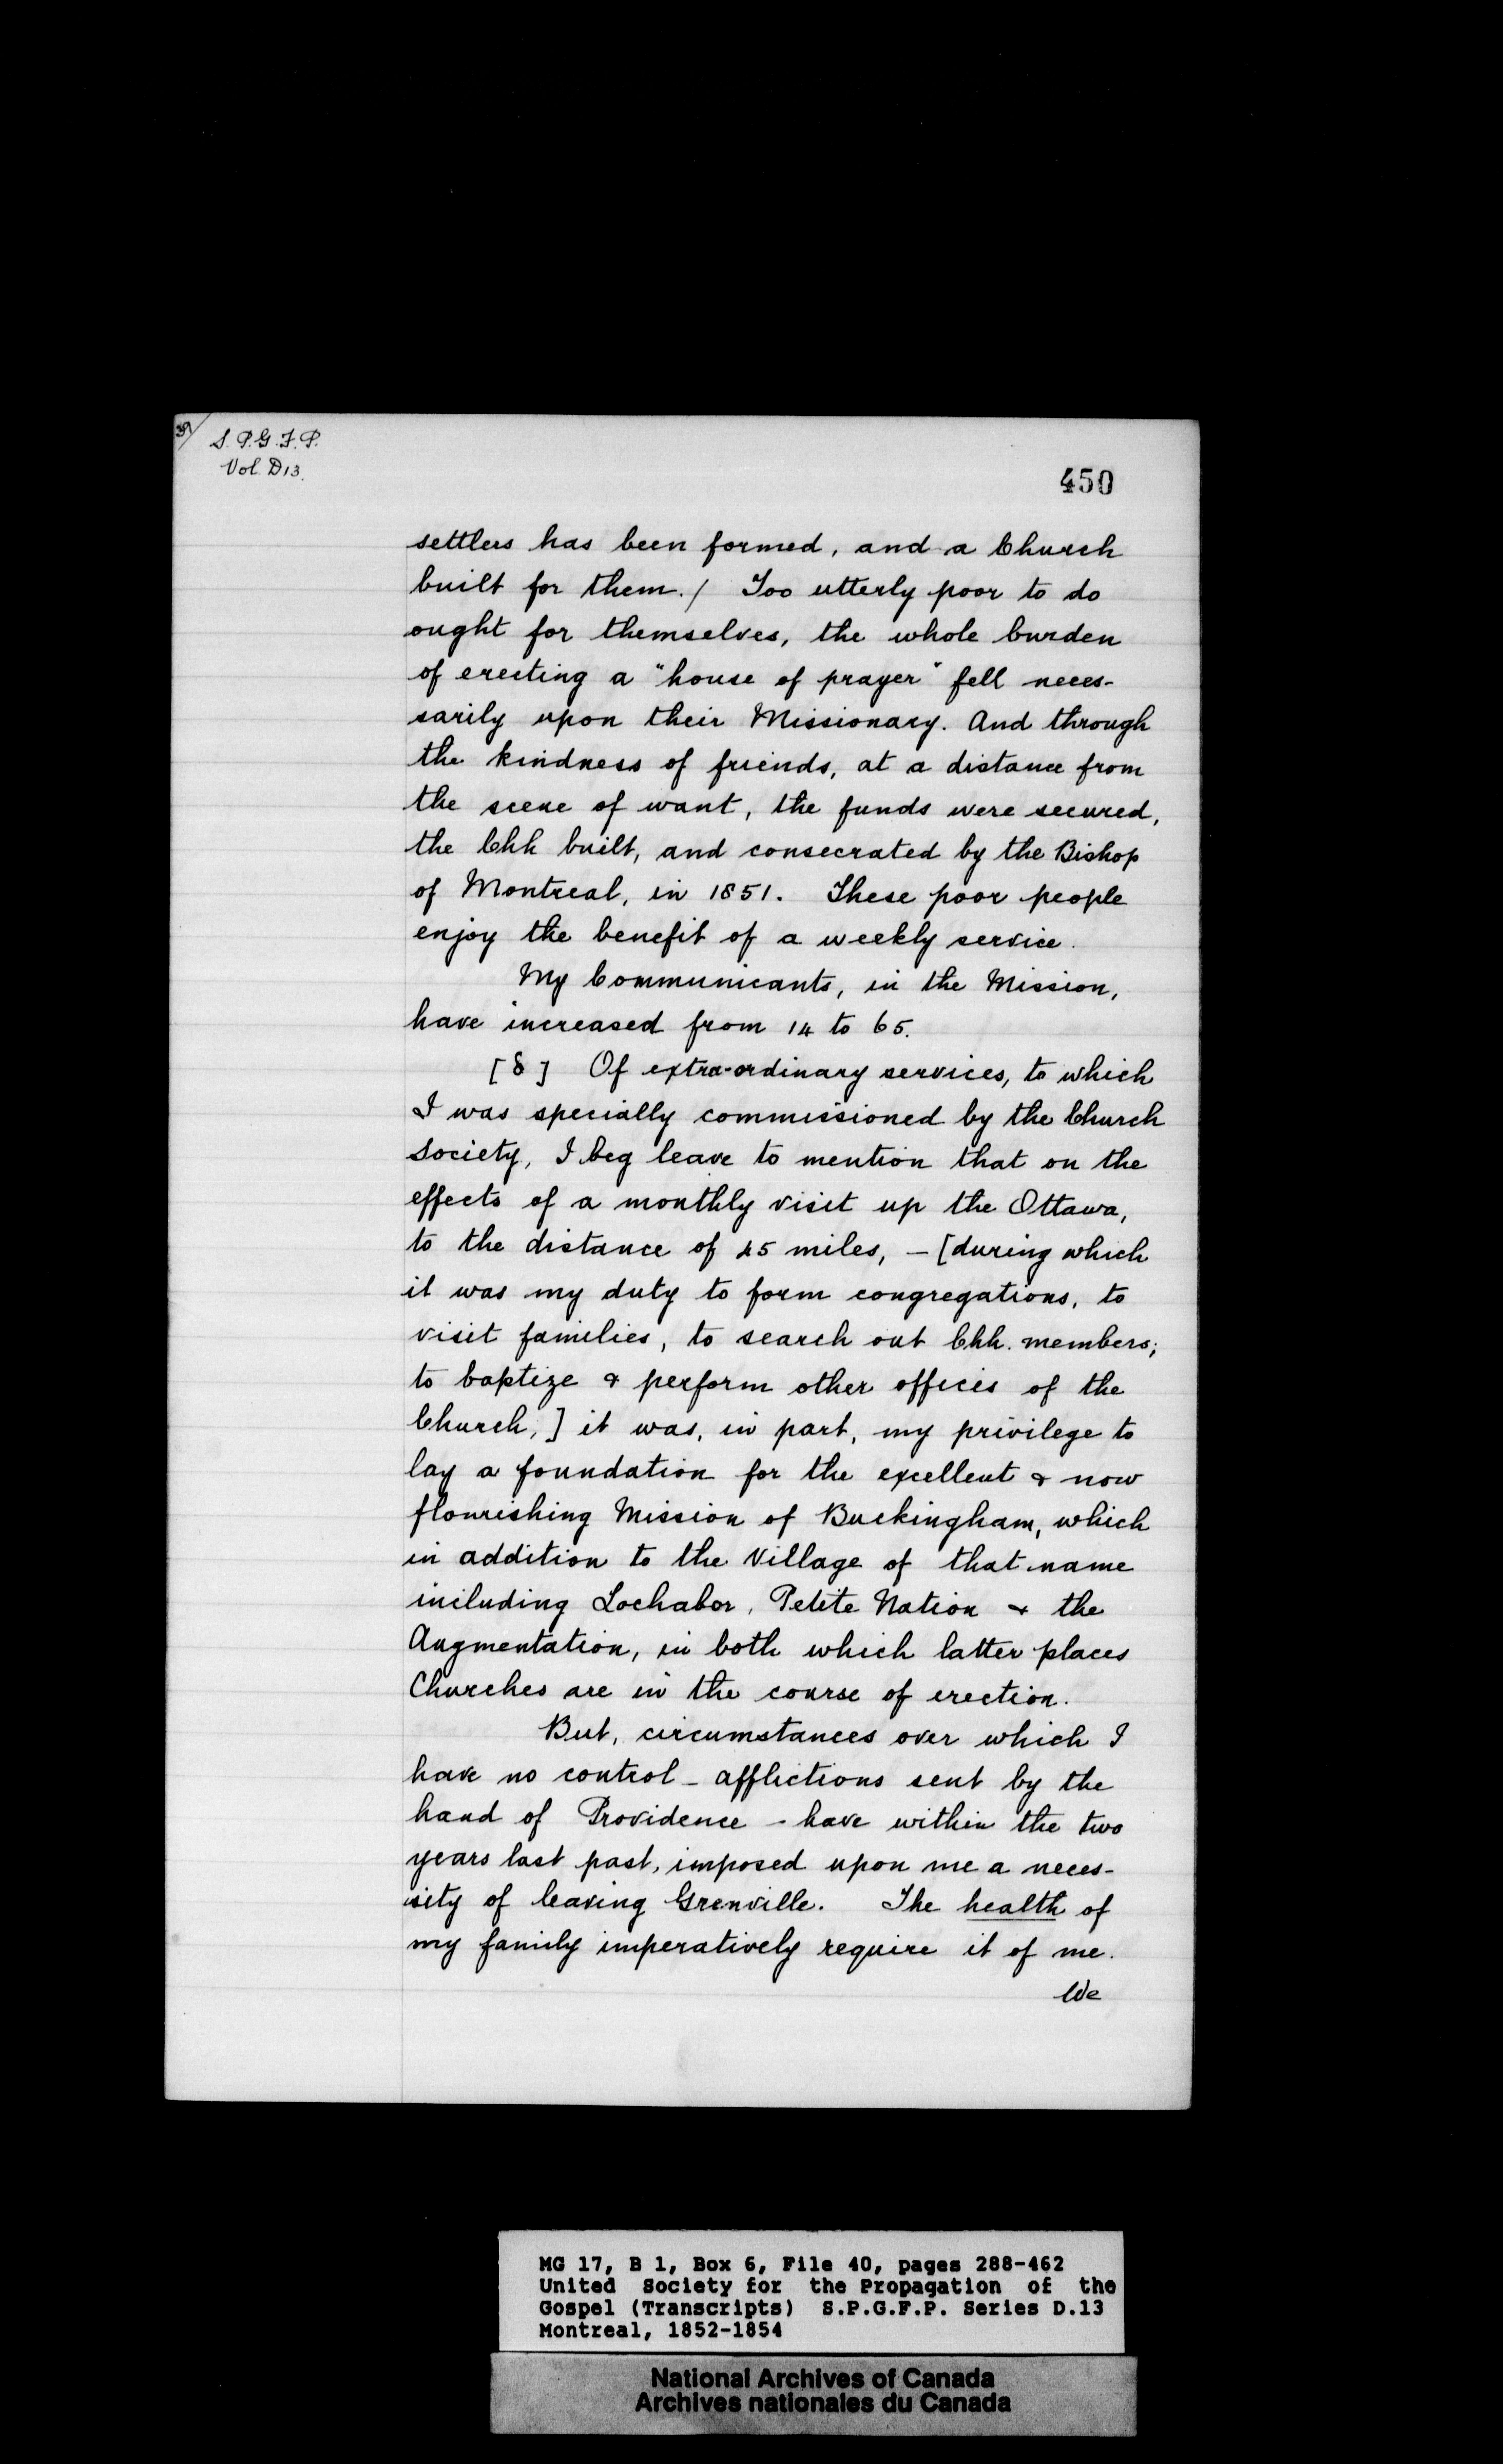 S. P. G. F. P.
Vol. D13.
450
settlers has been formed, and a Church
built for them./ Too utterly poor to do
ought for themselves, the whole burden
of erecting a "house of prayer" fell neces-
sarily upon their Missionary. And through
the kindness of friends, at a distance from
the scene of want, the funds were secured,
the Chh built, and consecrated by the Bishop
of Montreal, in 1851. These poor people
enjoy the benefit of a weekly service.
My Communicants, in the Mission,
have increased from 14 to 65.
[8] Of extra-ordinary services, to which
I was specially commissioned by the Church
Society, I beg leave to mention that on the
effects of a monthly visit up the Ottawa,
to the distance of 45 miles, - [during which
it was my duty to form congregations, to
visit families, to search out Chh. members;
to baptize & perform other offices of the
Church;] it was, in part, my privilege to
lay a foundation for the excellent & now
flourishing Mission of Buckingham, which
in addition to the Village of that name
including Lochabor, Petite Nation & the
Augmentation, in both which latter places
Churches are in the course of erection.
But, circumstances over which I
have no control - afflictions sent by the
hand of Providence - have within the two
years last past, imposed upon me a neces-
sity of leaving Grenville. The health of
my family imperatively require it of me.
We
MG 17, B 1, Box 6, File 40, pages 288-462
United Society for the Propagation of the
Gospel (Transcripts) S.P.G.F.P. Series D.13
Montreal, 1852-1854
National Archives of Canada
Archives nationales du Canada